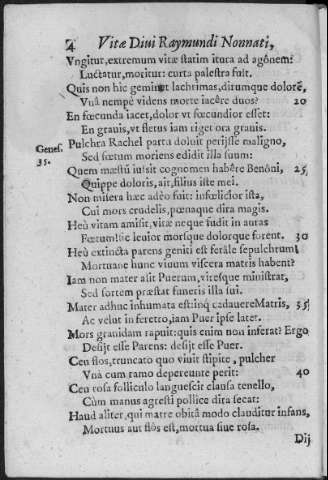 4 Vitæ Diui Raymundi Nonnati,
Vngitur, extremum vitæ statim itura ad agônem:
Luctatur, moritur: curta palestra fuit.
Quis non hic geminet lachrimas, dirumque dolorē,
Vnâ nempè videns morte iacêre duos? 20
En fœcunda iacet, dolor vt fœcundior esset:
En grauis, vt fletus iam riget ora grauis.
Pulchra Rachel partu doluit perijsse maligno,
Genes. 35.
Sed fœtum moriens edidit illa suum:
Quem mæstū iussit cognomen habêre Benôni, 25
Quippe doloris, ait, filius iste mei.
Non misera hæc adèo fuit: infœlicior ista,
Cui mors crudelis, pœnaque dira magis.
Heù vitam amisit, vitæ neque fudit in auras
Fœtum: sic leuior morsque dolorque forent. 30
Heù extincta parens geniti est ferâle sepulchrum!
Mortuane hunc viuum viscera matris habent?
Iam non mater alit Puerum, vitesque ministrat,
Sed sortem præstat funeris illa sui.
Mater adhuc inhumata est: inq; cadauere Matris, 35
Ac velut in feretro, iam Puer ipse latet.
Mors grauidam rapuit: quis enim non inferat? Ergo
Desijt esse Parens: desijt esse Puer.
Ceu flos, truncato quo viuit stipite, pulcher
Vnà cum ramo depereunte perit: 40
Ceu rosa folliculo languescit clausa tenello,
Cùm manus agresti pollice dira secat:
Haud aliter, qui matre obitâ modo clauditur infans,
Mortuus aut flôs est, mortua siue rosa.
Dij